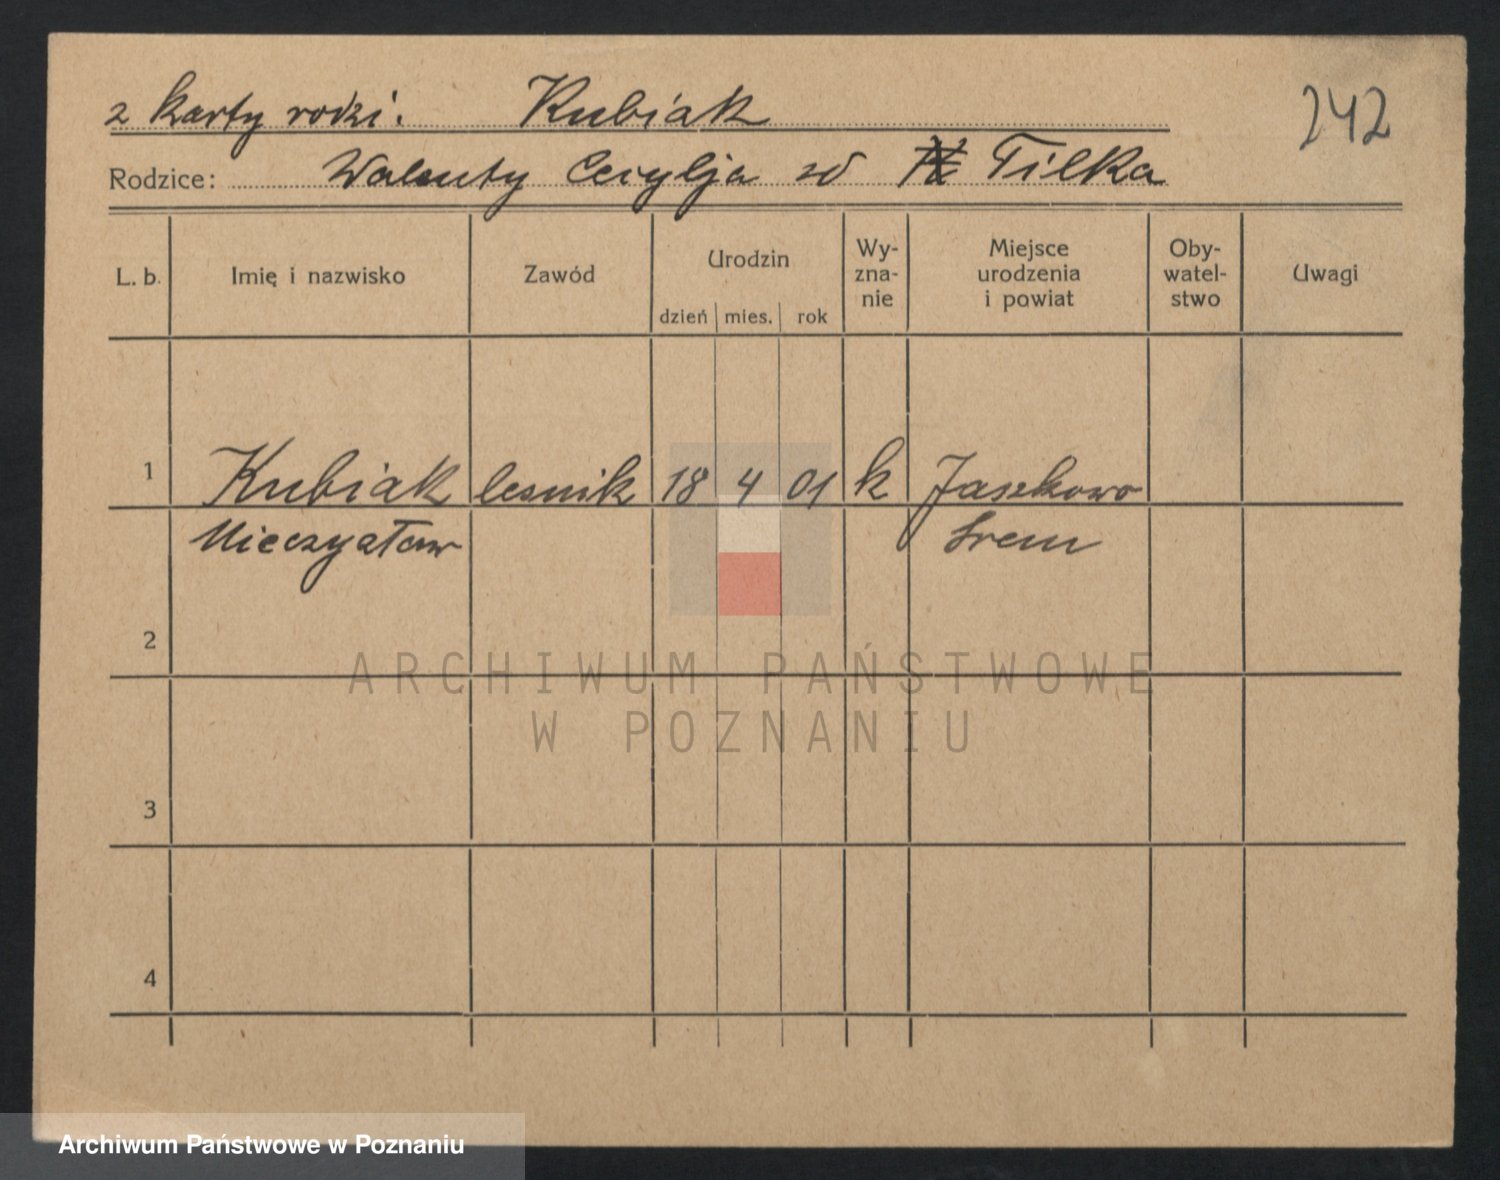 z karty rodzi. Kubiak
242
Rodzice: Walenty Cecylja zd Tilka
L. b. Imię i nazwisko Zawód Urodzin dzień mies. rok Wy-zna-nie Miejsce urodzenia i powiat Oby-watel-stwo Uwagi
1 Kubiak lesnik 18 4 01 k Jaszkowo
Mieczysław Srem
2
ARCHIWUM PAŃSTWOWE
W POZNANIU
3
4
Archiwum Państwowe w Poznaniu